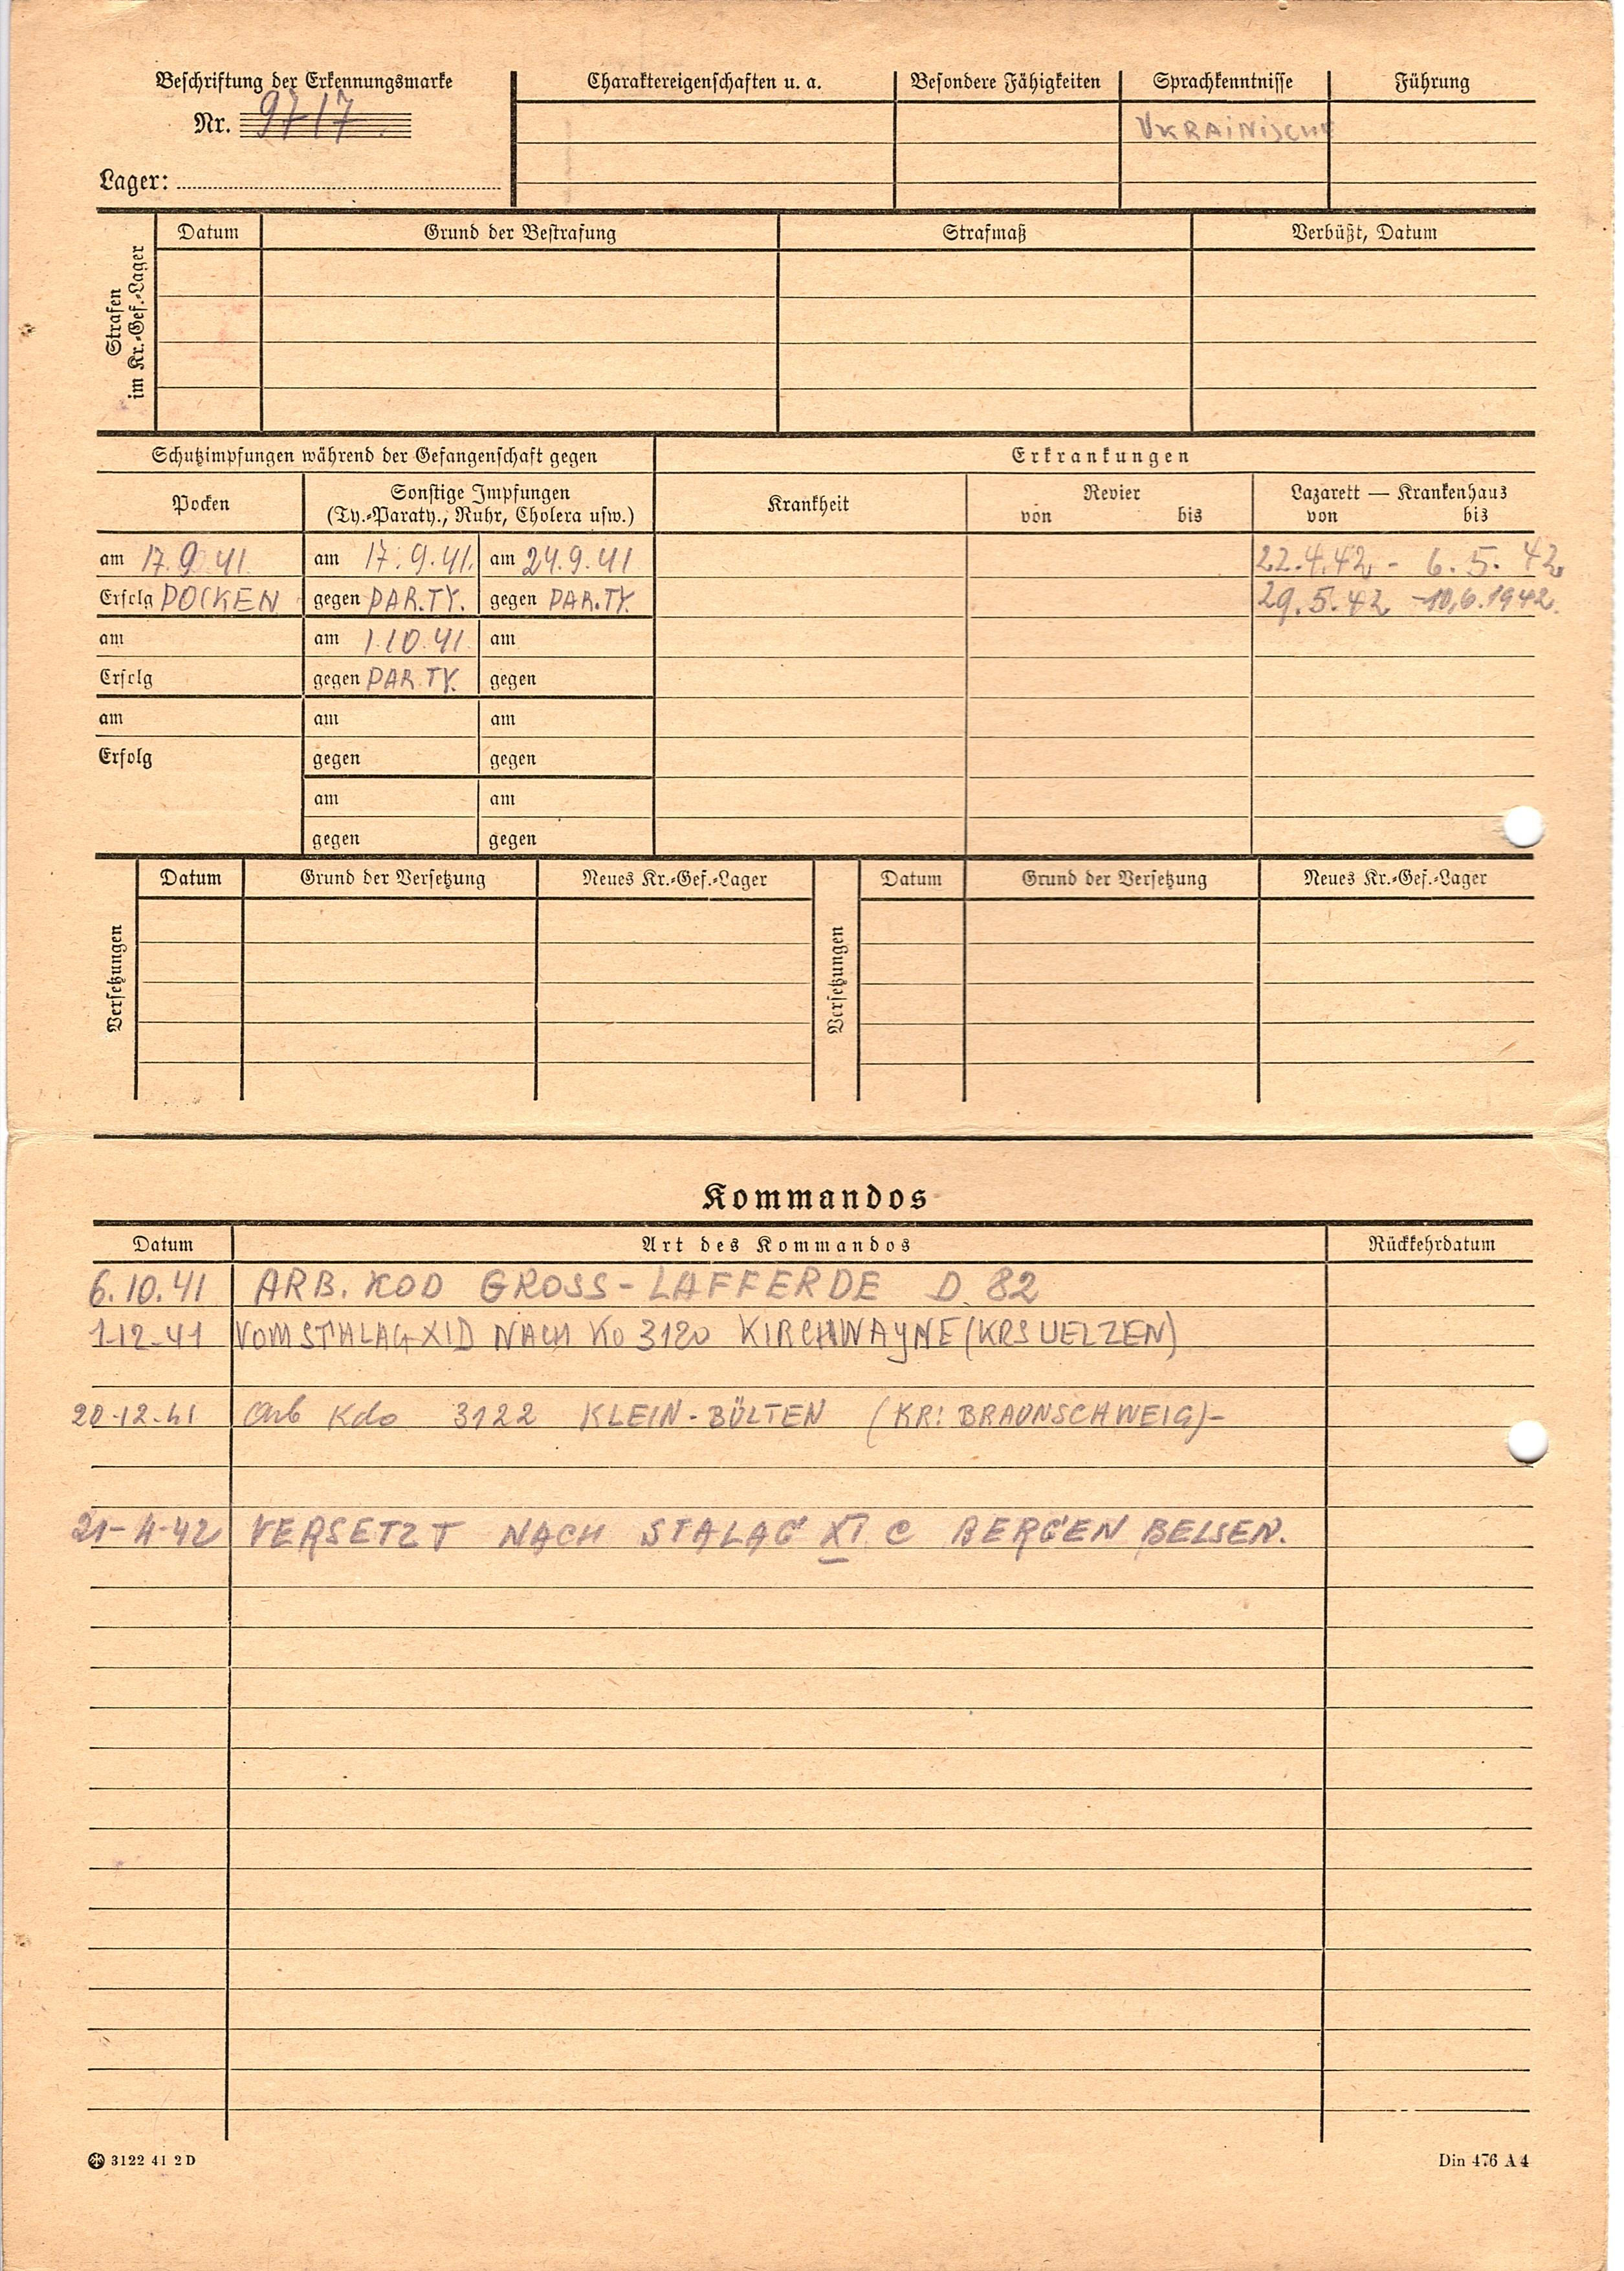 Beschriftung der Erkennungsmarke
Nr. 9717
Lager:
Charaktereigenschaften u. a.
Besondere Fähigkeiten
Sprachkenntnisse
Führung
UKRAINISCHE
Strafen
im Kr.-Gef.-Lager
Datum
Grund der Bestrafung
Strafmaß
Verbüßt, Datum
Schutzimpfungen während der Gefangenschaft gegen
Erkrankungen
Pocken
Sonstige Impfungen
(Ty.-Paraty., Ruhr, Cholera usw.)
Krankheit
Revier
von bis
Lazarett — Krankenhaus
von bis
am 17.9.41 am 17.9.41. am 24.9.41 22.4.42 - 6.5.42
Erfolg POCKEN gegen PAR.TY. gegen PAR.TY. 29.5.42 - 10.6.1942.
am am 1.10.41. am
Erfolg gegen PAR.TY. gegen
am am am
Erfolg gegen gegen
am am
gegen gegen
Versetzungen
Datum
Grund der Versetzung
Neues Kr.-Gef.-Lager
Versetzungen
Datum
Grund der Versetzung
Neues Kr.-Gef.-Lager
Kommandos
Datum Art des Kommandos Rückkehrdatum
6.10.41 ARB. KOD GROSS-LAFFERDE D. 82
1-12-41 VOM STALAG XID NACH KO 3120 KIRCHWAYNE (KRS UELZEN)
20-12-41 Arb Kdo 3122 KLEIN-BÜLTEN (KR: BRAUNSCHWEIG)-
21-4-42 VERSETZT NACH STALAG XI C BERGEN BELSEN.
3122 41 2 D
Din 476 A 4